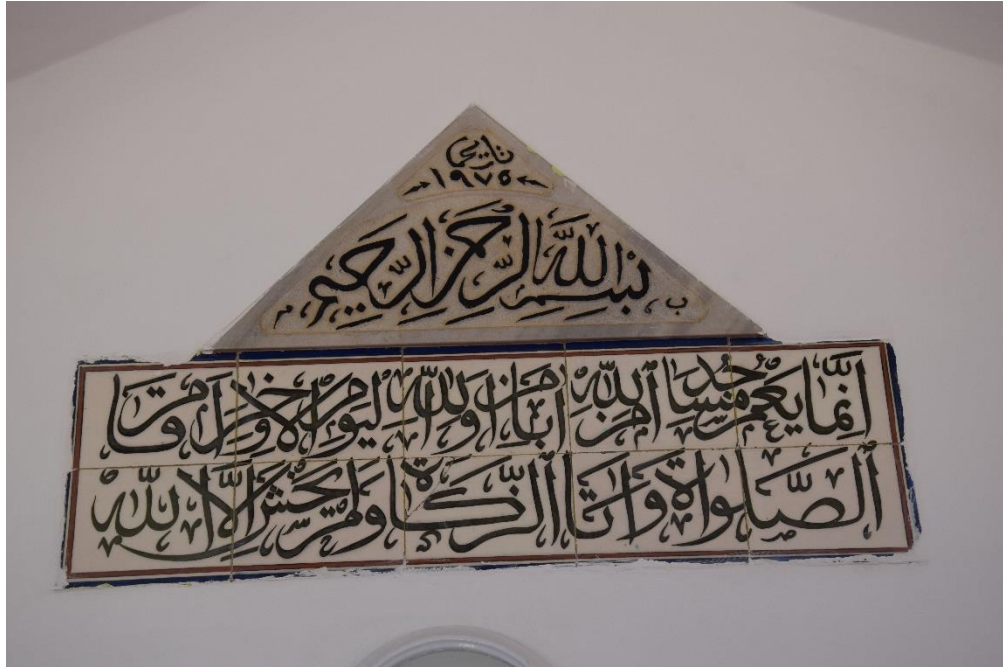 تاريخ
١٩٧٥
بسم الله الرحمن الرحيم
إنما يعمر مساجد الله من آمن بالله واليوم الآخر وأقام
الصلوة وآتى الزكاة ولم يخش إلا الله